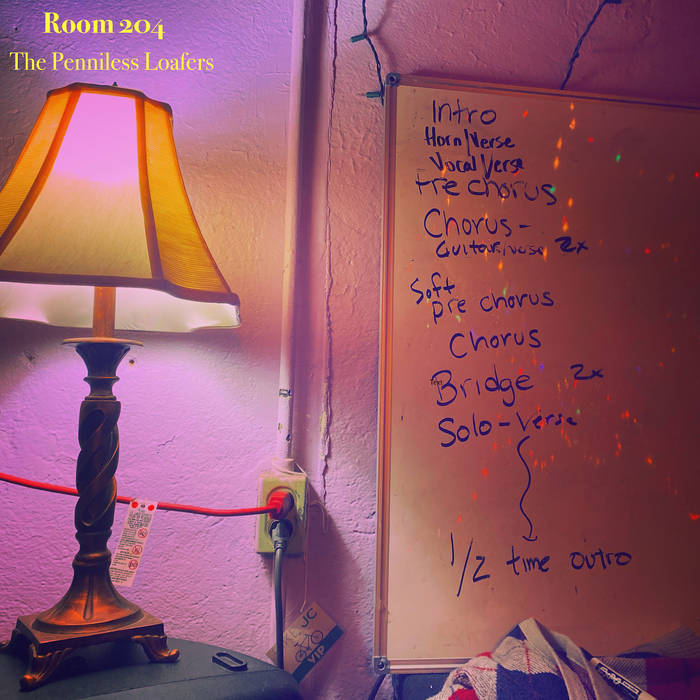 Room 204
The Penniless Loafers
Intro
Horn Verse
Vocal Verse
Pre chorus
Chorus -
Guitar verse 2x
Soft
pre chorus
Chorus
Bridge 2x
Solo - Verse
1/2 time outro
JC
VIP